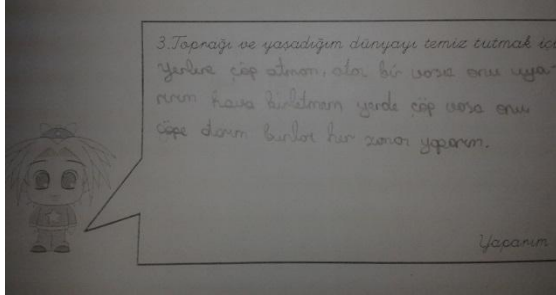 3.Toprağı ve yaşadığım dünyayı temiz tutmak içi
Yerlere çöp atmam, atan bir varsa onu uya-
rırım hava kirletmem yerde çöp varsa onu
çöpe atarım bunları her zaman yaparım.
Yaparım